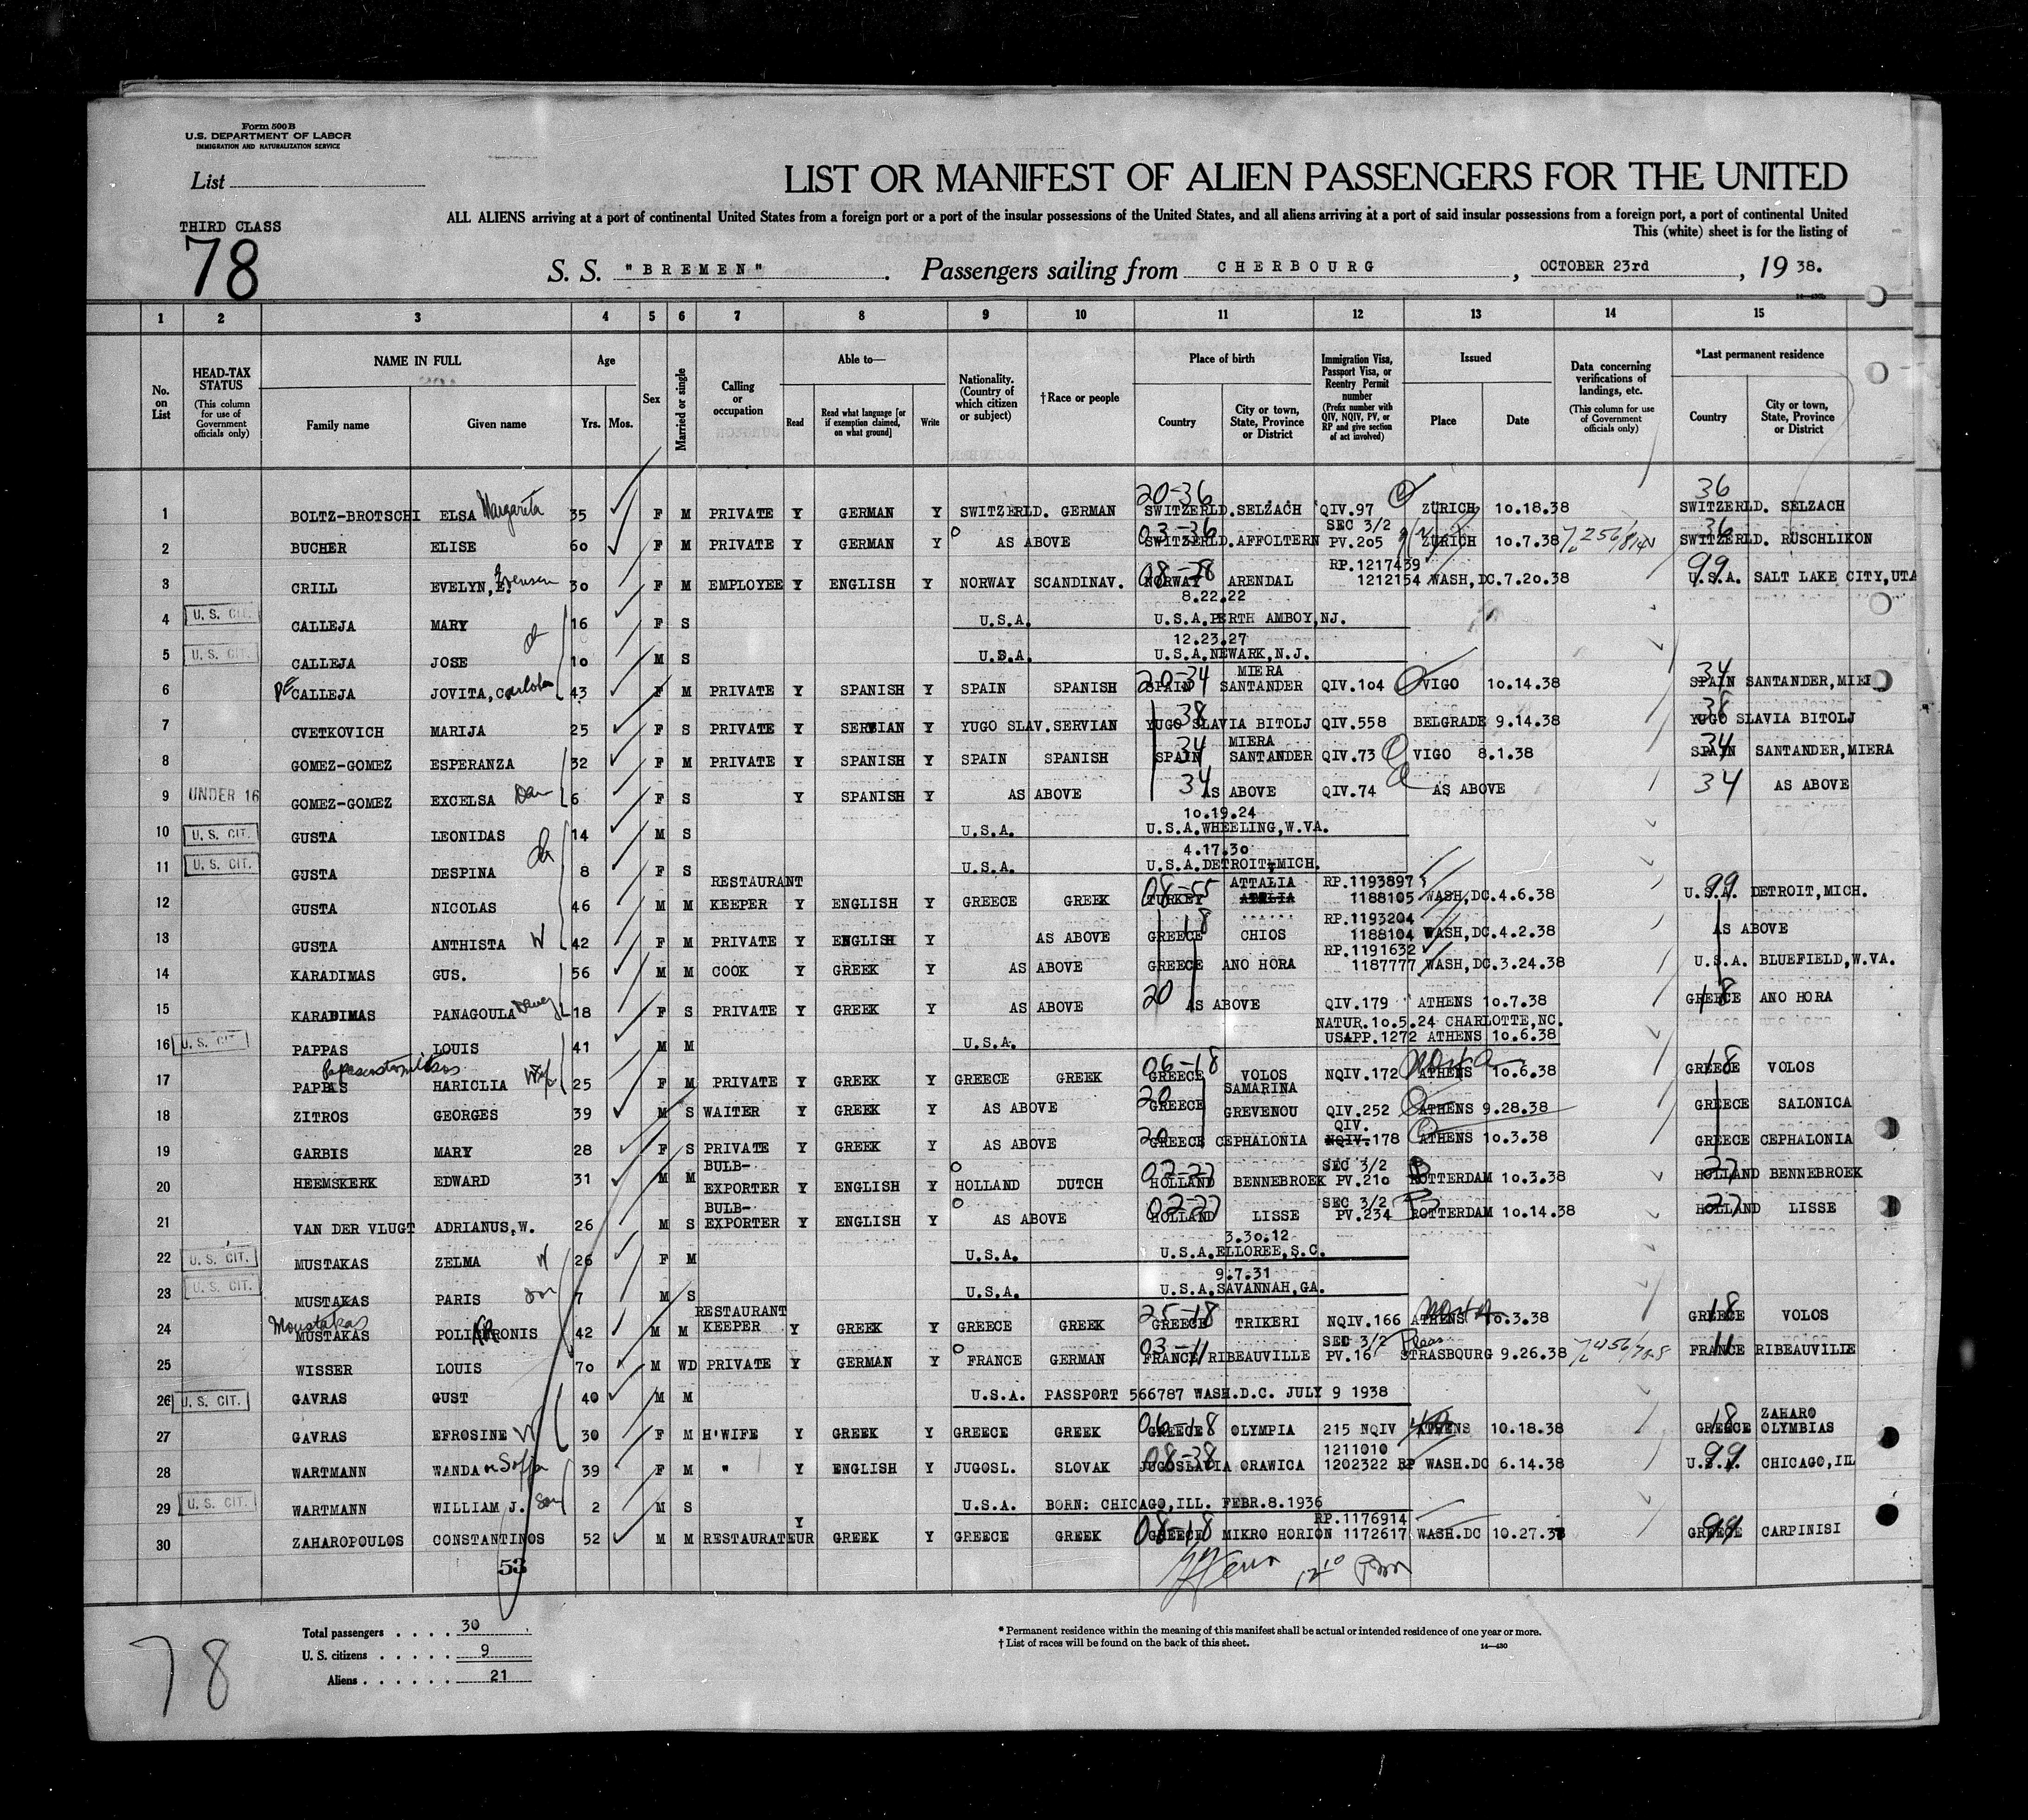 Form 500 B
U.S. DEPARTMENT OF LABOR
IMMIGRATION AND NATURALIZATION SERVICE
List
LIST OR MANIFEST OF ALIEN PASSENGERS FOR THE UNITED
ALL ALIENS arriving at a port of continental United States from a foreign port or a port of the insular possessions of the United States, and all aliens arriving at a port of said insular possessions from a foreign port, a port of continental United
This (white) sheet is for the listing of
THIRD CLASS
78
S. S. "BREMEN". Passengers sailing from CHERBOURG, OCTOBER 23rd, 19 38.
1 2 3 4 5 6 7 8 9 10 11 12 13 14 15
No. on List
HEAD-TAX STATUS (This column for use of Government officials only)
NAME IN FULL
Family name Given name
Age
Yrs. Mos.
Sex
Married or single
Calling or occupation
Able to—
Read
Read what language [or if exemption claimed, on what ground]
Write
Nationality. (Country of which citizen or subject)
†Race or people
Place of birth
Country
City or town, State, Province or District
Immigration Visa, Passport Visa, or Reentry Permit number (Prefix number with QIV, NQIV, PV, or RP and give section of act involved)
Issued
Place Date
Data concerning verifications of landings, etc. (This column for use of Government officials only)
*Last permanent residence
Country
City or town, State, Province or District
20-36 36
1 BOLTZ-BROTSCHI ELSA Margareta 35 F M PRIVATE Y GERMAN Y SWITZERLD. GERMAN SWITZERLD. SELZACH QIV.97 ZURICH 10.18.38 SWITZERLD. SELZACH
03-36 SEC 3/2 36
2 BUCHER ELISE 60 F M PRIVATE Y GERMAN Y AS ABOVE SWITZERLD. AFFOLTERN PV.205 ZURICH 10.7.38 SWITZERLD. RUSCHLIKON
08-28 RP.1217439 99
3 CRILL EVELYN, E. Evensen 30 F M EMPLOYEE Y ENGLISH Y NORWAY SCANDINAV. NORWAY ARENDAL 1212154 WASH,DC. 7.20.38 U.S.A. SALT LAKE CITY, UTA
8.22.22
4 U. S. CIT. CALLEJA MARY 16 F S U.S.A. U.S.A. PERTH AMBOY, NJ.
12.23.27
5 U. S. CIT. CALLEJA JOSE 10 M S U.S.A. U.S.A. NEWARK, N.J.
20-34 MIERA 34
6 CALLEJA JOVITA, Carlota 43 F M PRIVATE Y SPANISH Y SPAIN SPANISH SPAIN SANTANDER QIV.104 VIGO 10.14.38 SPAIN SANTANDER, MIE
38 38
7 CVETKOVICH MARIJA 25 F S PRIVATE Y SERVIAN Y YUGO SLAV. SERVIAN YUGO SLAVIA BITOLJ QIV.558 BELGRADE 9.14.38 YUGO SLAVIA BITOLJ
34 MIERA 34
8 GOMEZ-GOMEZ ESPERANZA 32 F M PRIVATE Y SPANISH Y SPAIN SPANISH SPAIN SANTANDER QIV.73 VIGO 8.1.38 SPAIN SANTANDER, MIERA
9 UNDER 16 GOMEZ-GOMEZ EXCELSA Dau 6 F S Y SPANISH Y AS ABOVE 34 AS ABOVE QIV.74 AS ABOVE 34 AS ABOVE
10.19.24
10 U. S. CIT. GUSTA LEONIDAS 14 M S U.S.A. U.S.A. WHEELING, W.VA.
4.17.30
11 U. S. CIT. GUSTA DESPINA 8 F S U.S.A. U.S.A. DETROIT, MICH.
RESTAURANT 08-55 ATTALIA RP.1193897 99
12 GUSTA NICOLAS 46 M M KEEPER Y ENGLISH Y GREECE GREEK TURKEY 1188105 WASH,DC. 4.6.38 U.S.A. DETROIT, MICH.
18 RP.1193204
13 GUSTA ANTHISTA W 42 F M PRIVATE Y ENGLISH Y AS ABOVE GREECE CHIOS 1188104 WASH,DC. 4.2.38 AS ABOVE
RP.1191632
14 KARADIMAS GUS. 56 M M COOK Y GREEK Y AS ABOVE GREECE ANO HORA 1187777 WASH,DC. 3.24.38 U.S.A. BLUEFIELD, W.VA.
15 KARADIMAS PANAGOULA 18 F S PRIVATE Y GREEK Y AS ABOVE 20 AS ABOVE QIV.179 ATHENS 10.7.38 18 GREECE ANO HORA
NATUR. 10.5.24 CHARLOTTE, NC.
16 U. S. CIT. PAPPAS LOUIS 41 M M U.S.A. USAPP.1272 ATHENS 10.6.38
06-18 18
17 PAPPAS HARICLIA Wife 25 F M PRIVATE Y GREEK Y GREECE GREEK GREECE VOLOS NQIV.172 ATHENS 10.6.38 GREECE VOLOS
20 SAMARINA
18 ZITROS GEORGES 39 M S WAITER Y GREEK Y AS ABOVE GREECE GREVENOU QIV.252 ATHENS 9.28.38 GREECE SALONICA
20 QIV.
19 GARBIS MARY 28 F S PRIVATE Y GREEK Y AS ABOVE GREECE CEPHALONIA NQIV.178 ATHENS 10.3.38 GREECE CEPHALONIA
BULB- 02-27 SEC 3/2 27
20 HEEMSKERK EDWARD 31 M M EXPORTER Y ENGLISH Y HOLLAND DUTCH HOLLAND BENNEBROEK PV.210 ROTTERDAM 10.3.38 HOLLAND BENNEBROEK
BULB- 02-27 SEC 3/2 27
21 VAN DER VLUGT ADRIANUS, W. 26 M S EXPORTER Y ENGLISH Y AS ABOVE HOLLAND LISSE PV.234 ROTTERDAM 10.14.38 HOLLAND LISSE
3.30.12
22 U. S. CIT. MUSTAKAS ZELMA W 26 F M U.S.A. U.S.A. ELLOREE, S.C.
9.7.31
23 U. S. CIT. MUSTAKAS PARIS son 7 M S U.S.A. U.S.A. SAVANNAH, GA.
Moustakas RESTAURANT 25-18 18
24 MUSTAKAS POLIKRONIS 42 M M KEEPER Y GREEK Y GREECE GREEK GREECE TRIKERI NQIV.166 ATHENS 10.3.38 GREECE VOLOS
03-11 SEC 3/2 Pleas 11
25 WISSER LOUIS 70 M WD PRIVATE Y GERMAN Y FRANCE GERMAN FRANCE RIBEAUVILLE PV.16 STRASBOURG 9.26.38 FRANCE RIBEAUVILLE
26 U. S. CIT. GAVRAS GUST 40 M M U.S.A. PASSPORT 566787 WASH.D.C. JULY 9 1938
06-18 18 ZAHARO
27 GAVRAS EFROSINE W 30 F M H'WIFE Y GREEK Y GREECE GREEK GREECE OLYMPIA 215 NQIV ATHENS 10.18.38 GREECE OLYMBIAS
08-38 1211010 99
28 WARTMANN WANDA 39 F M " Y ENGLISH Y JUGOSL. SLOVAK JUGOSLAVIA ORAWICA 1202322 RP WASH.DC 6.14.38 U.S.A. CHICAGO, ILL
29 U. S. CIT. WARTMANN WILLIAM J. son 2 M S U.S.A. BORN: CHICAGO, ILL. FEBR.8.1936
08-18 RP.1176914 99
30 ZAHAROPOULOS CONSTANTINOS 52 M M RESTAURATEUR Y GREEK Y GREECE GREEK GREECE MIKRO HORION 1172617 WASH.DC 10.27.38 GREECE CARPINISI
53
12 10 Pm
Total passengers . . . . 30
U. S. citizens . . . . . 9
Aliens . . . . . . 21
* Permanent residence within the meaning of this manifest shall be actual or intended residence of one year or more.
† List of races will be found on the back of this sheet.
14—430
78